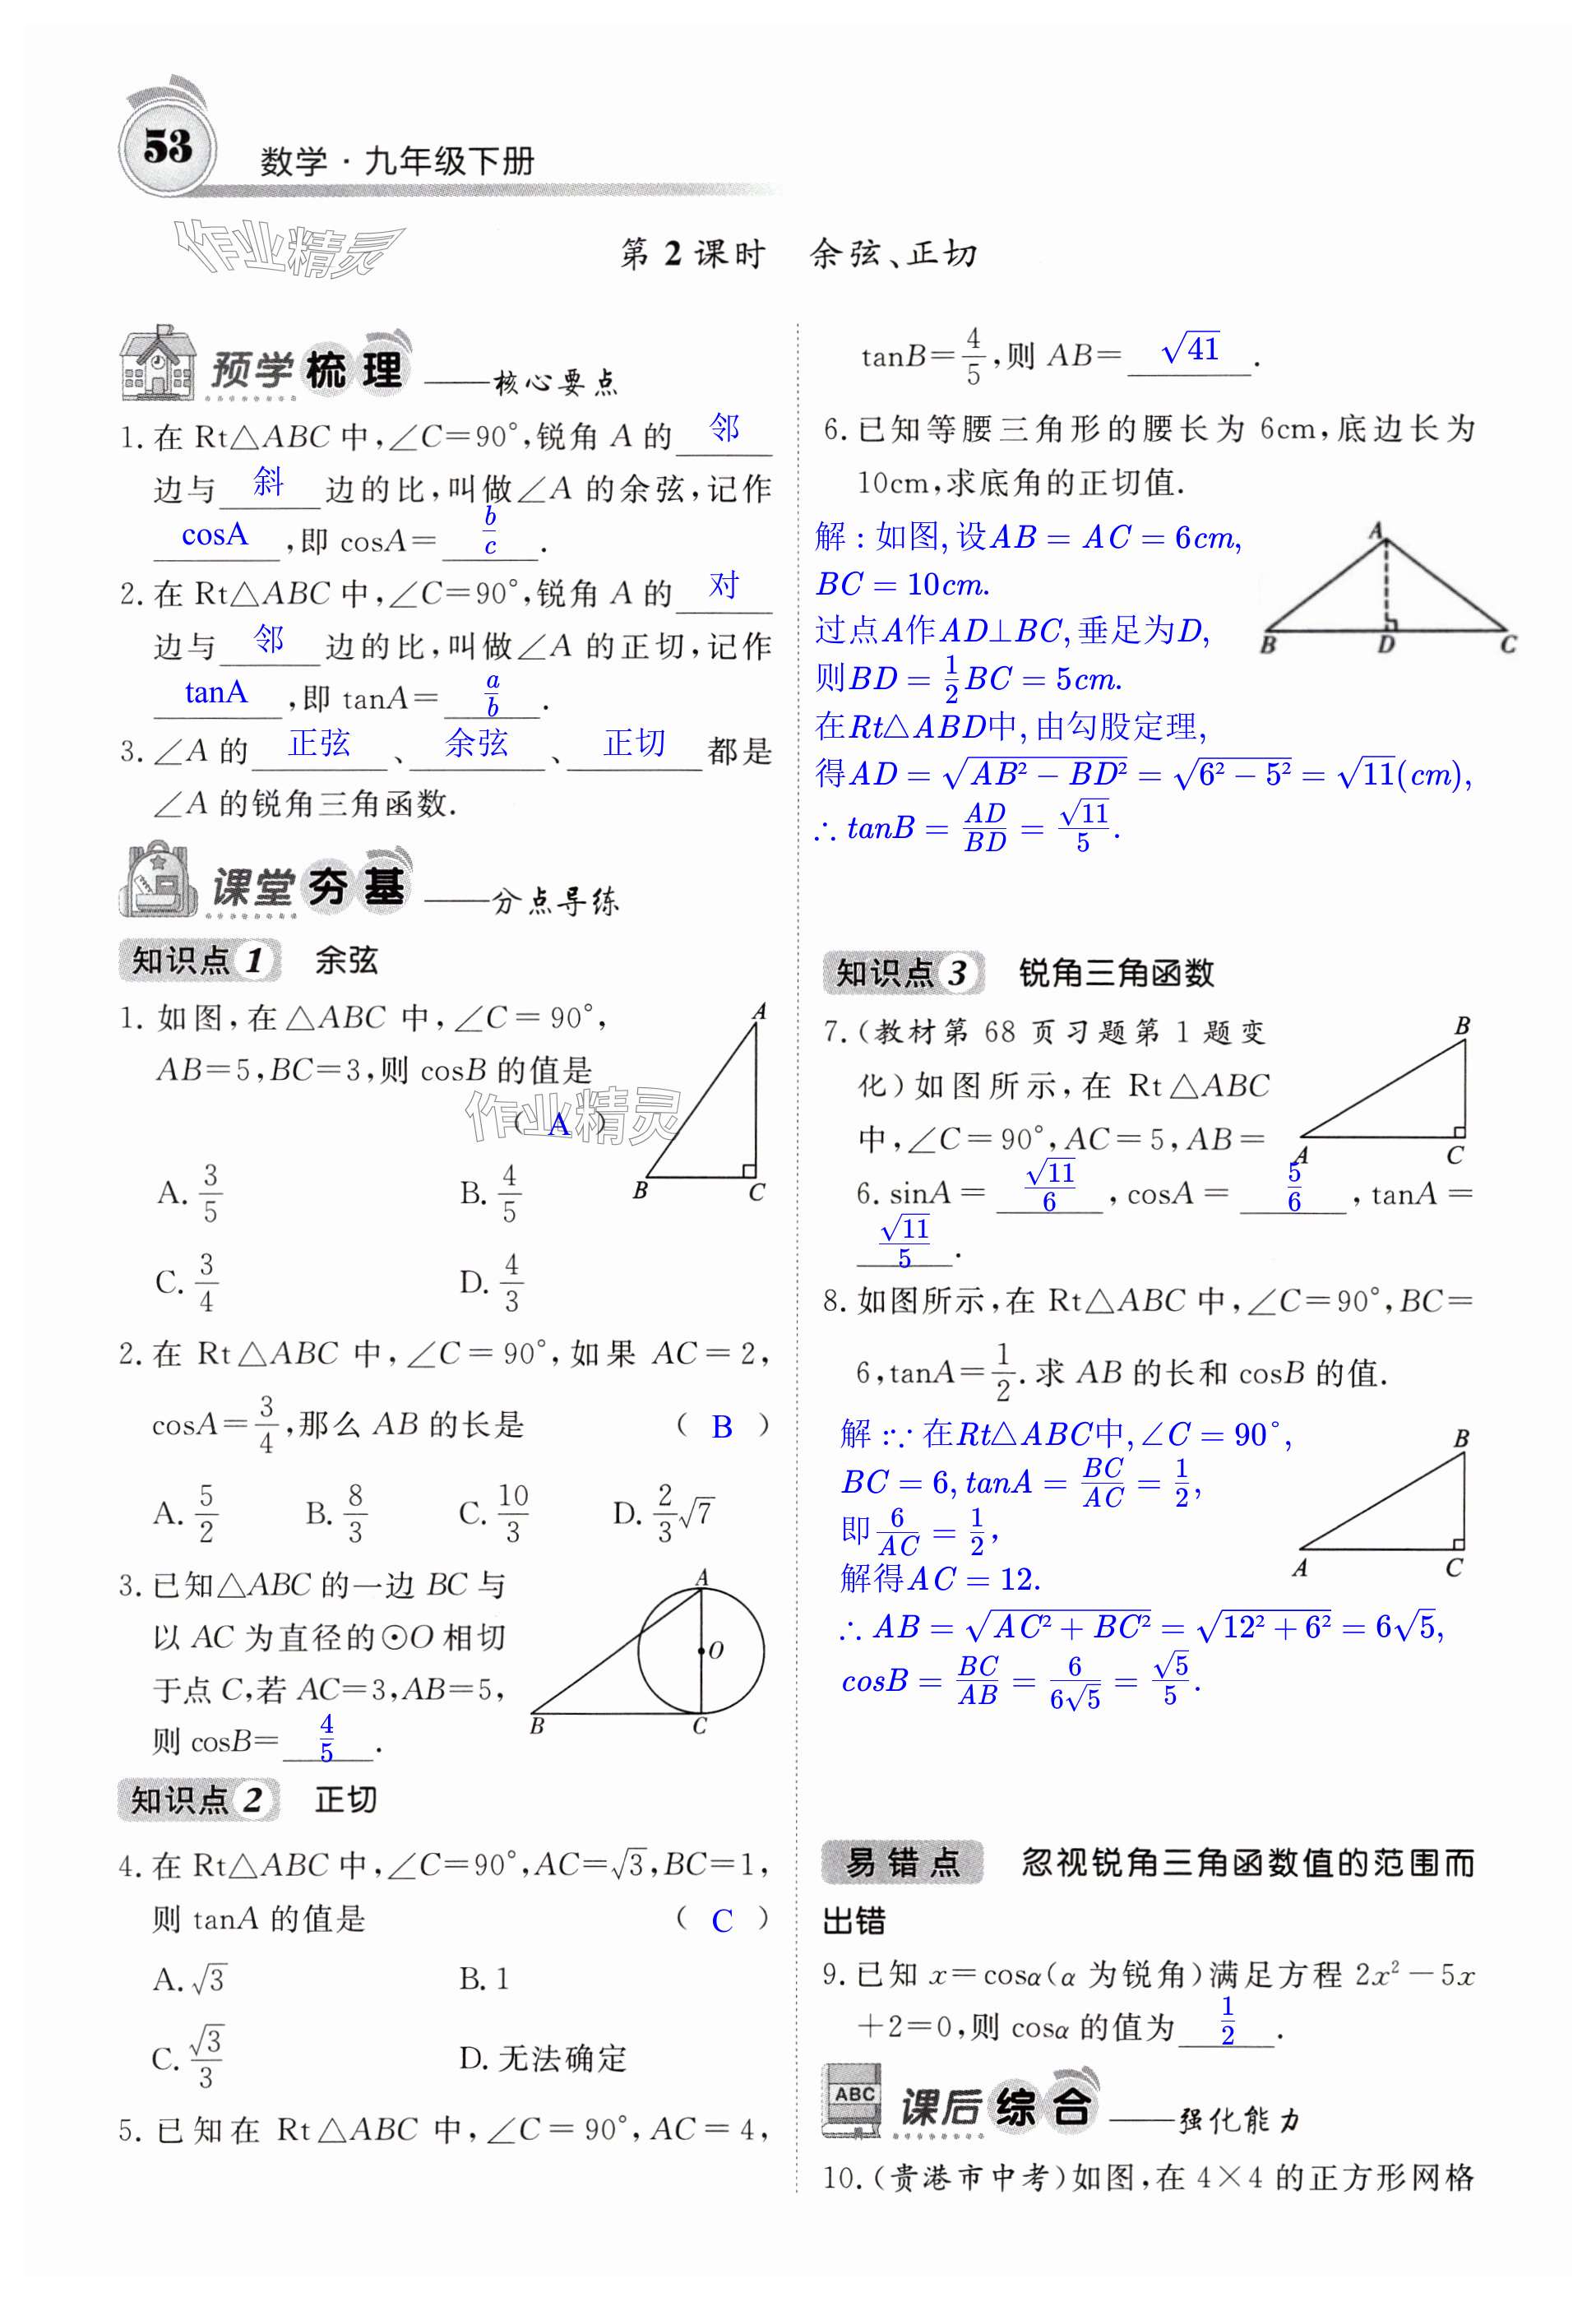 53
数学·九年级下册
作业精灵
第2课时 余弦、正切
预学梳理——核心要点
1.在Rt△ABC中,∠C=90°,锐角A的 邻
边与 斜 边的比,叫做∠A的余弦,记作
cosA ,即cosA= b/c .
2.在Rt△ABC中,∠C=90°,锐角A的 对
边与 邻 边的比,叫做∠A的正切,记作
tanA ,即tanA= a/b .
3.∠A的 正弦 、 余弦 、 正切 都是
∠A的锐角三角函数.
课堂夯基——分点导练
知识点1 余弦
1.如图,在△ABC中,∠C=90°,
AB=5,BC=3,则cosB的值是
( A )
作业精灵
A. 3/5 B. 4/5
C. 3/4 D. 4/3
A
B C
2.在Rt△ABC中,∠C=90°,如果AC=2,
cosA=3/4,那么AB的长是 ( B )
A. 5/2 B. 8/3 C. 10/3 D. 2/3√7
3.已知△ABC的一边BC与
以AC为直径的⊙O相切
于点C,若AC=3,AB=5,
则cosB= 4/5 .
A
O
B C
知识点2 正切
4.在Rt△ABC中,∠C=90°,AC=√3,BC=1,
则tanA的值是 ( C )
A.√3 B.1
C. √3/3 D.无法确定
5.已知在Rt△ABC中,∠C=90°,AC=4,
tanB=4/5,则AB= √41 .
6.已知等腰三角形的腰长为6cm,底边长为
10cm,求底角的正切值.
解:如图,设AB=AC=6cm,
BC=10cm.
过点A作AD⊥BC,垂足为D,
则BD=1/2BC=5cm.
在Rt△ABD中,由勾股定理,
得AD=√(AB²-BD²)=√(6²-5²)=√11(cm),
∴tanB=AD/BD=√11/5.
A
B D C
知识点3 锐角三角函数
7.(教材第68页习题第1题变
化)如图所示,在Rt△ABC
中,∠C=90°,AC=5,AB=
6.sinA= √11/6 ,cosA= 5/6 ,tanA=
√11/5 .
B
A C
8.如图所示,在Rt△ABC中,∠C=90°,BC=
6,tanA=1/2.求AB的长和cosB的值.
解:∵在Rt△ABC中,∠C=90°,
BC=6,tanA=BC/AC=1/2,
即6/AC=1/2,
解得AC=12.
∴AB=√(AC²+BC²)=√(12²+6²)=6√5,
cosB=BC/AB=6/(6√5)=√5/5.
B
A C
易错点 忽视锐角三角函数值的范围而
出错
9.已知x=cosα(α为锐角)满足方程2x²-5x
+2=0,则cosα的值为 1/2 .
ABC
课后综合——强化能力
10.(贵港市中考)如图,在4×4的正方形网格